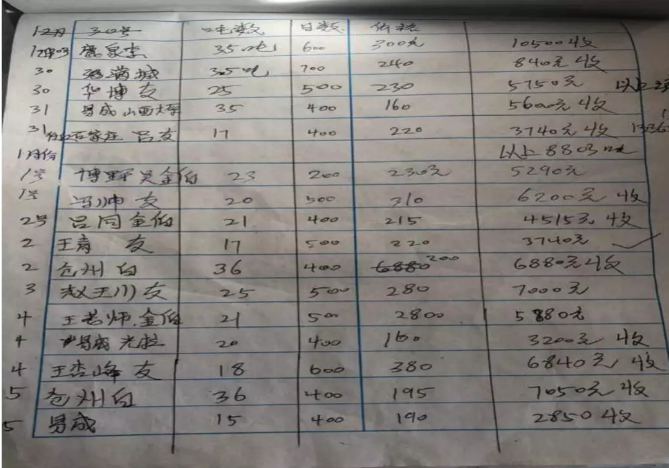 12月 30号 吨数 目数 价格
35.吨 600 300元 10500收
30 35吨 700 240 840元 收
30 华博友 25 500 230 5750元 以上
31 易成山西大 35 400 160 5600元收
31 石家庄 吕友 17 400 220 3740元收
1月份 以上880
1号 博野吴金伯 23 200 230元 5290元
1号 帅友 20 500 310 6200元 收
2号 吕同金伯 21 400 215 4515元 收
2 王春 友 17 500 220 3740元
2 仓州白 36 400 200 6880元收
3 赵王川友 25 500 280 7000元
4 王老师.金伯 21 500 2800 5880元
4 易成 20 400 160 3200元 收
4 王杰峰 友 18 600 380 6840元 收
5 仓州白 36 400 195 7050元 收
5 易成 15 400 190 2850收